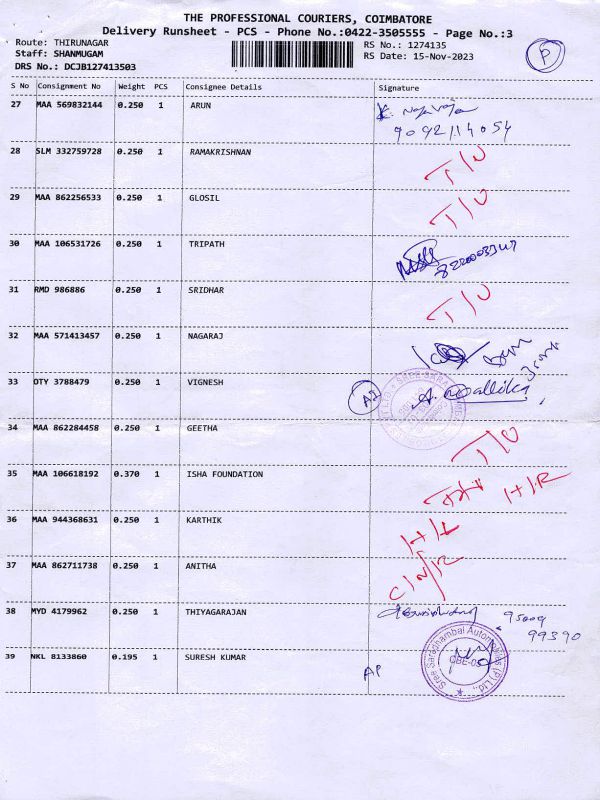 THE PROFESSIONAL COURIERS, COIMBATORE
Delivery Runsheet - PCS - Phone No.:0422-3505555 - Page No.:3
Route: THIRUNAGAR
RS No.: 1274135
Staff: SHANMUGAM
RS Date: 15-Nov-2023
DRS No.: DCJB127413503
P
S No Consignment No Weight PCS Consignee Details Signature
27 MAA 569832144 0.250 1 ARUN
9092114054
28 SLM 332759728 0.250 1 RAMAKRISHNAN T/U
29 MAA 862256533 0.250 1 GLOSIL T/U
30 MAA 106531726 0.250 1 TRIPATH
31 RMD 986886 0.250 1 SRIDHAR T/U
32 MAA 571413457 0.250 1 NAGARAJ
33 OTY 3788479 0.250 1 VIGNESH A. Mallika
34 MAA 862284458 0.250 1 GEETHA T/U
35 MAA 106618192 0.370 1 ISHA FOUNDATION H/R
36 MAA 944368631 0.250 1 KARTHIK
37 MAA 862711738 0.250 1 ANITHA C/N/R
38 MYD 4179962 0.250 1 THIYAGARAJAN 95009
99390
39 NKL 8133860 0.195 1 SURESH KUMAR AP
Sree Saradhambal Automobiles (P) Ltd.,
CBE-05